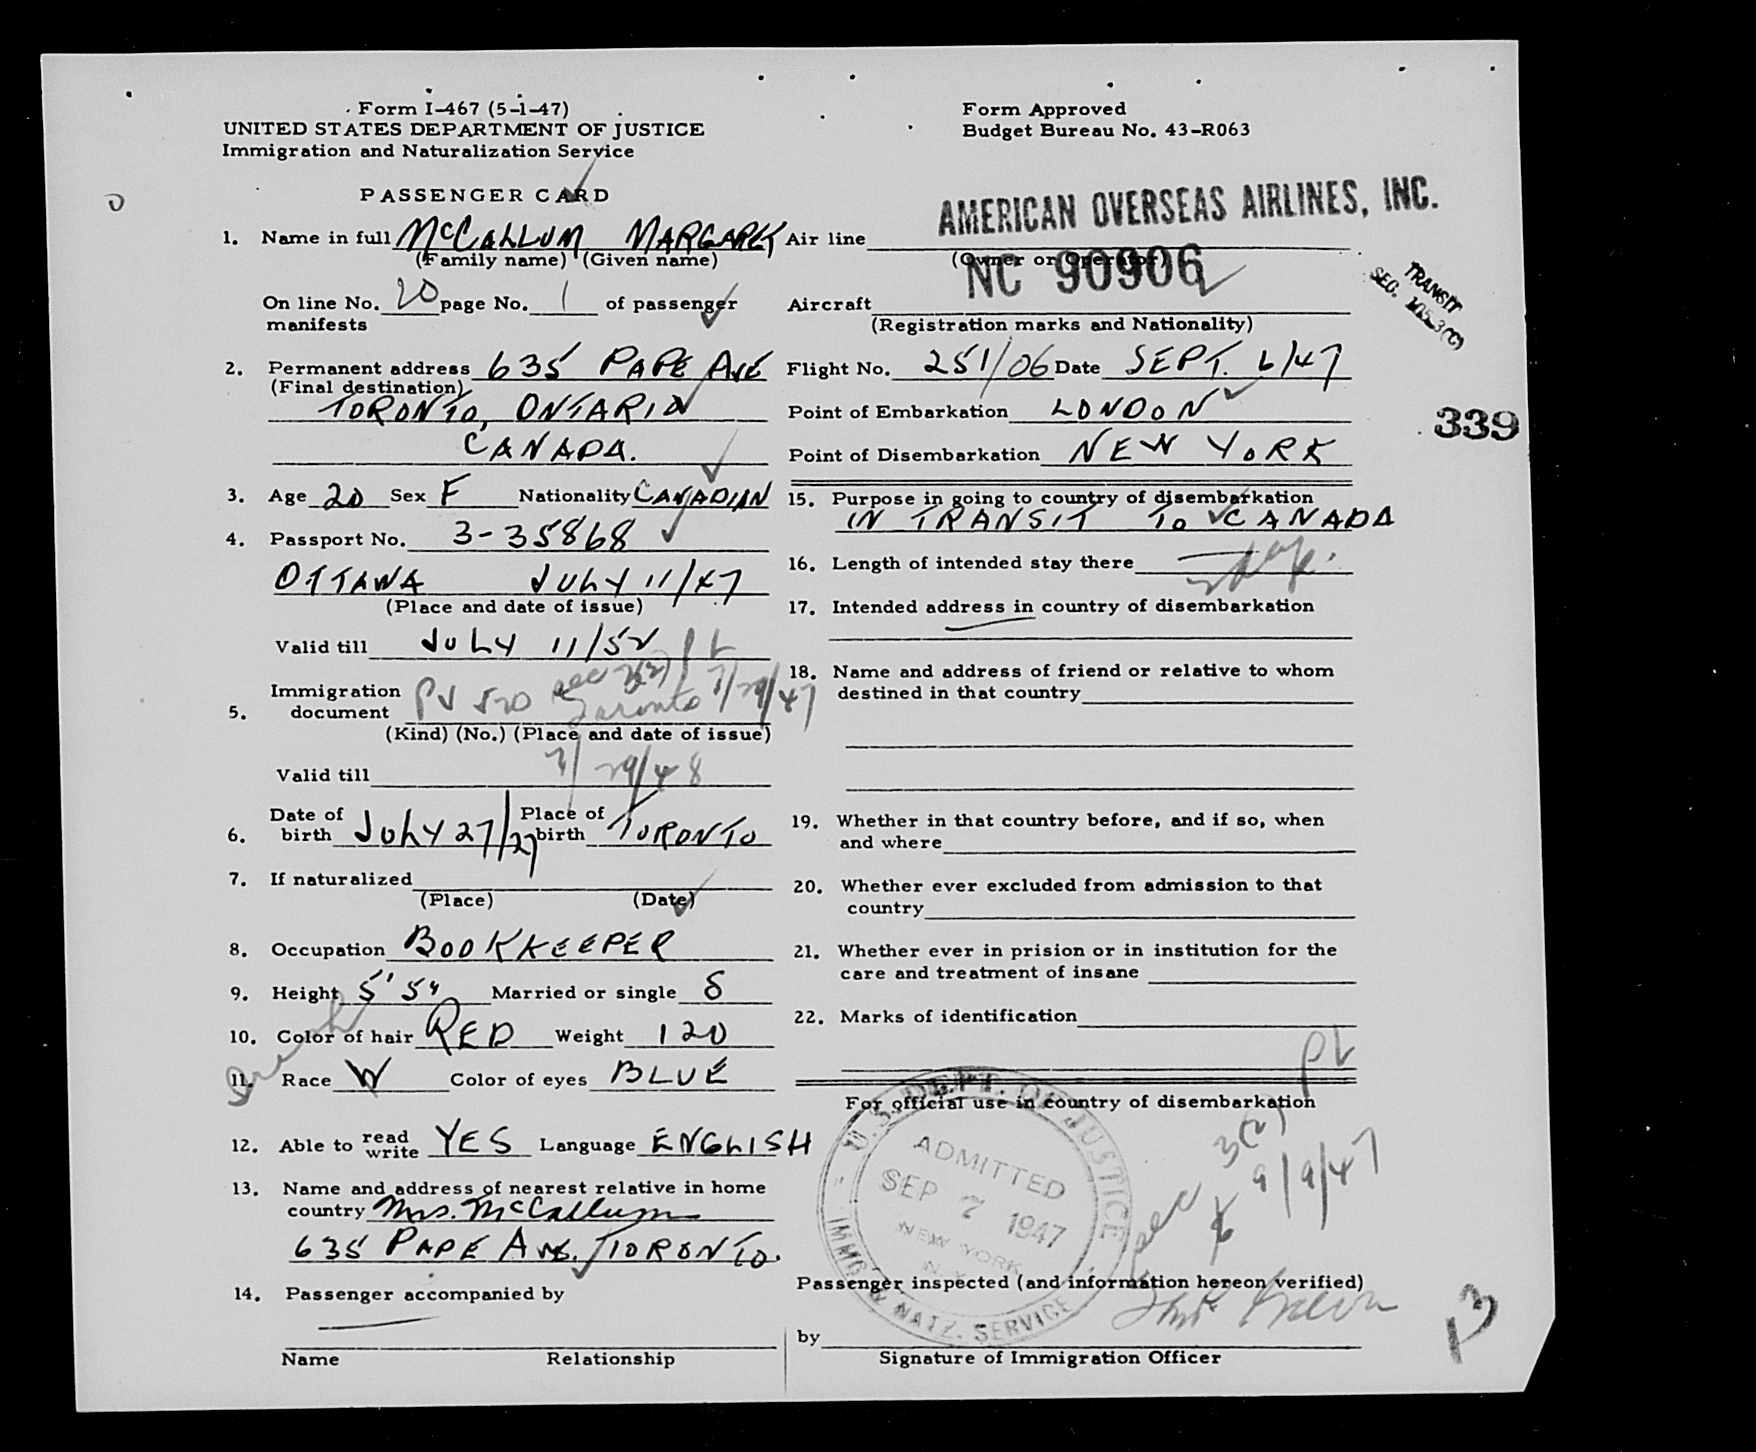 Form I-467 (5-1-47)
UNITED STATES DEPARTMENT OF JUSTICE
Immigration and Naturalization Service
PASSENGER CARD
1. Name in full McCALLUM MARGARET
(Family name) (Given name)
On line No. 20 page No. 1 of passenger
manifests
2. Permanent address 635 PAPE AVE
(Final destination)
TORONTO, ONTARIO
CANADA.
3. Age 20 Sex F Nationality CANADIAN
4. Passport No. 3-35868
OTTAWA JULY 11/47
(Place and date of issue)
Valid till JULY 11/52
PL
sec 3(2)
5. Immigration
document PV 520 Toronto 7/29/47
(Kind) (No.) (Place and date of issue)
Valid till 7/29/48
6. Date of
birth JULY 27/27 Place of
birth TORONTO
7. If naturalized
(Place) (Date)
8. Occupation BOOKKEEPER
9. Height 5' 5" Married or single S
10. Color of hair RED Weight 120
11. Race W Color of eyes BLUE
12. Able to read
write YES Language ENGLISH
13. Name and address of nearest relative in home
country Mrs. McCallum
635 PAPE AVE. TORONTO.
14. Passenger accompanied by
Name Relationship
Form Approved
Budget Bureau No. 43-R063
AMERICAN OVERSEAS AIRLINES, INC.
Air line
(Owner or Operator)
NC 90906
Aircraft
(Registration marks and Nationality)
TRANSIT
Flight No. 251/06 Date SEPT. 6/47
Point of Embarkation LONDON
339
Point of Disembarkation NEW YORK
15. Purpose in going to country of disembarkation
IN TRANSIT TO CANADA
16. Length of intended stay there
17. Intended address in country of disembarkation
18. Name and address of friend or relative to whom
destined in that country
19. Whether in that country before, and if so, when
and where
20. Whether ever excluded from admission to that
country
21. Whether ever in prision or in institution for the
care and treatment of insane
22. Marks of identification
PL
For official use in country of disembarkation
U.S. DEPT. OF JUSTICE
ADMITTED
SEP 7 1947
NEW YORK
N.Y.
IMMG. & NATZ. SERVICE
sec 3(2)
9/9/47
Passenger inspected (and information hereon verified)
by
Signature of Immigration Officer